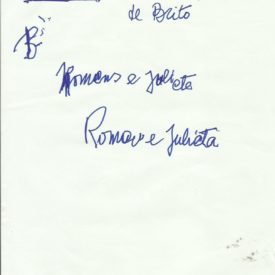 de Brito
B
Homens e Julieta
Romao e Julieta